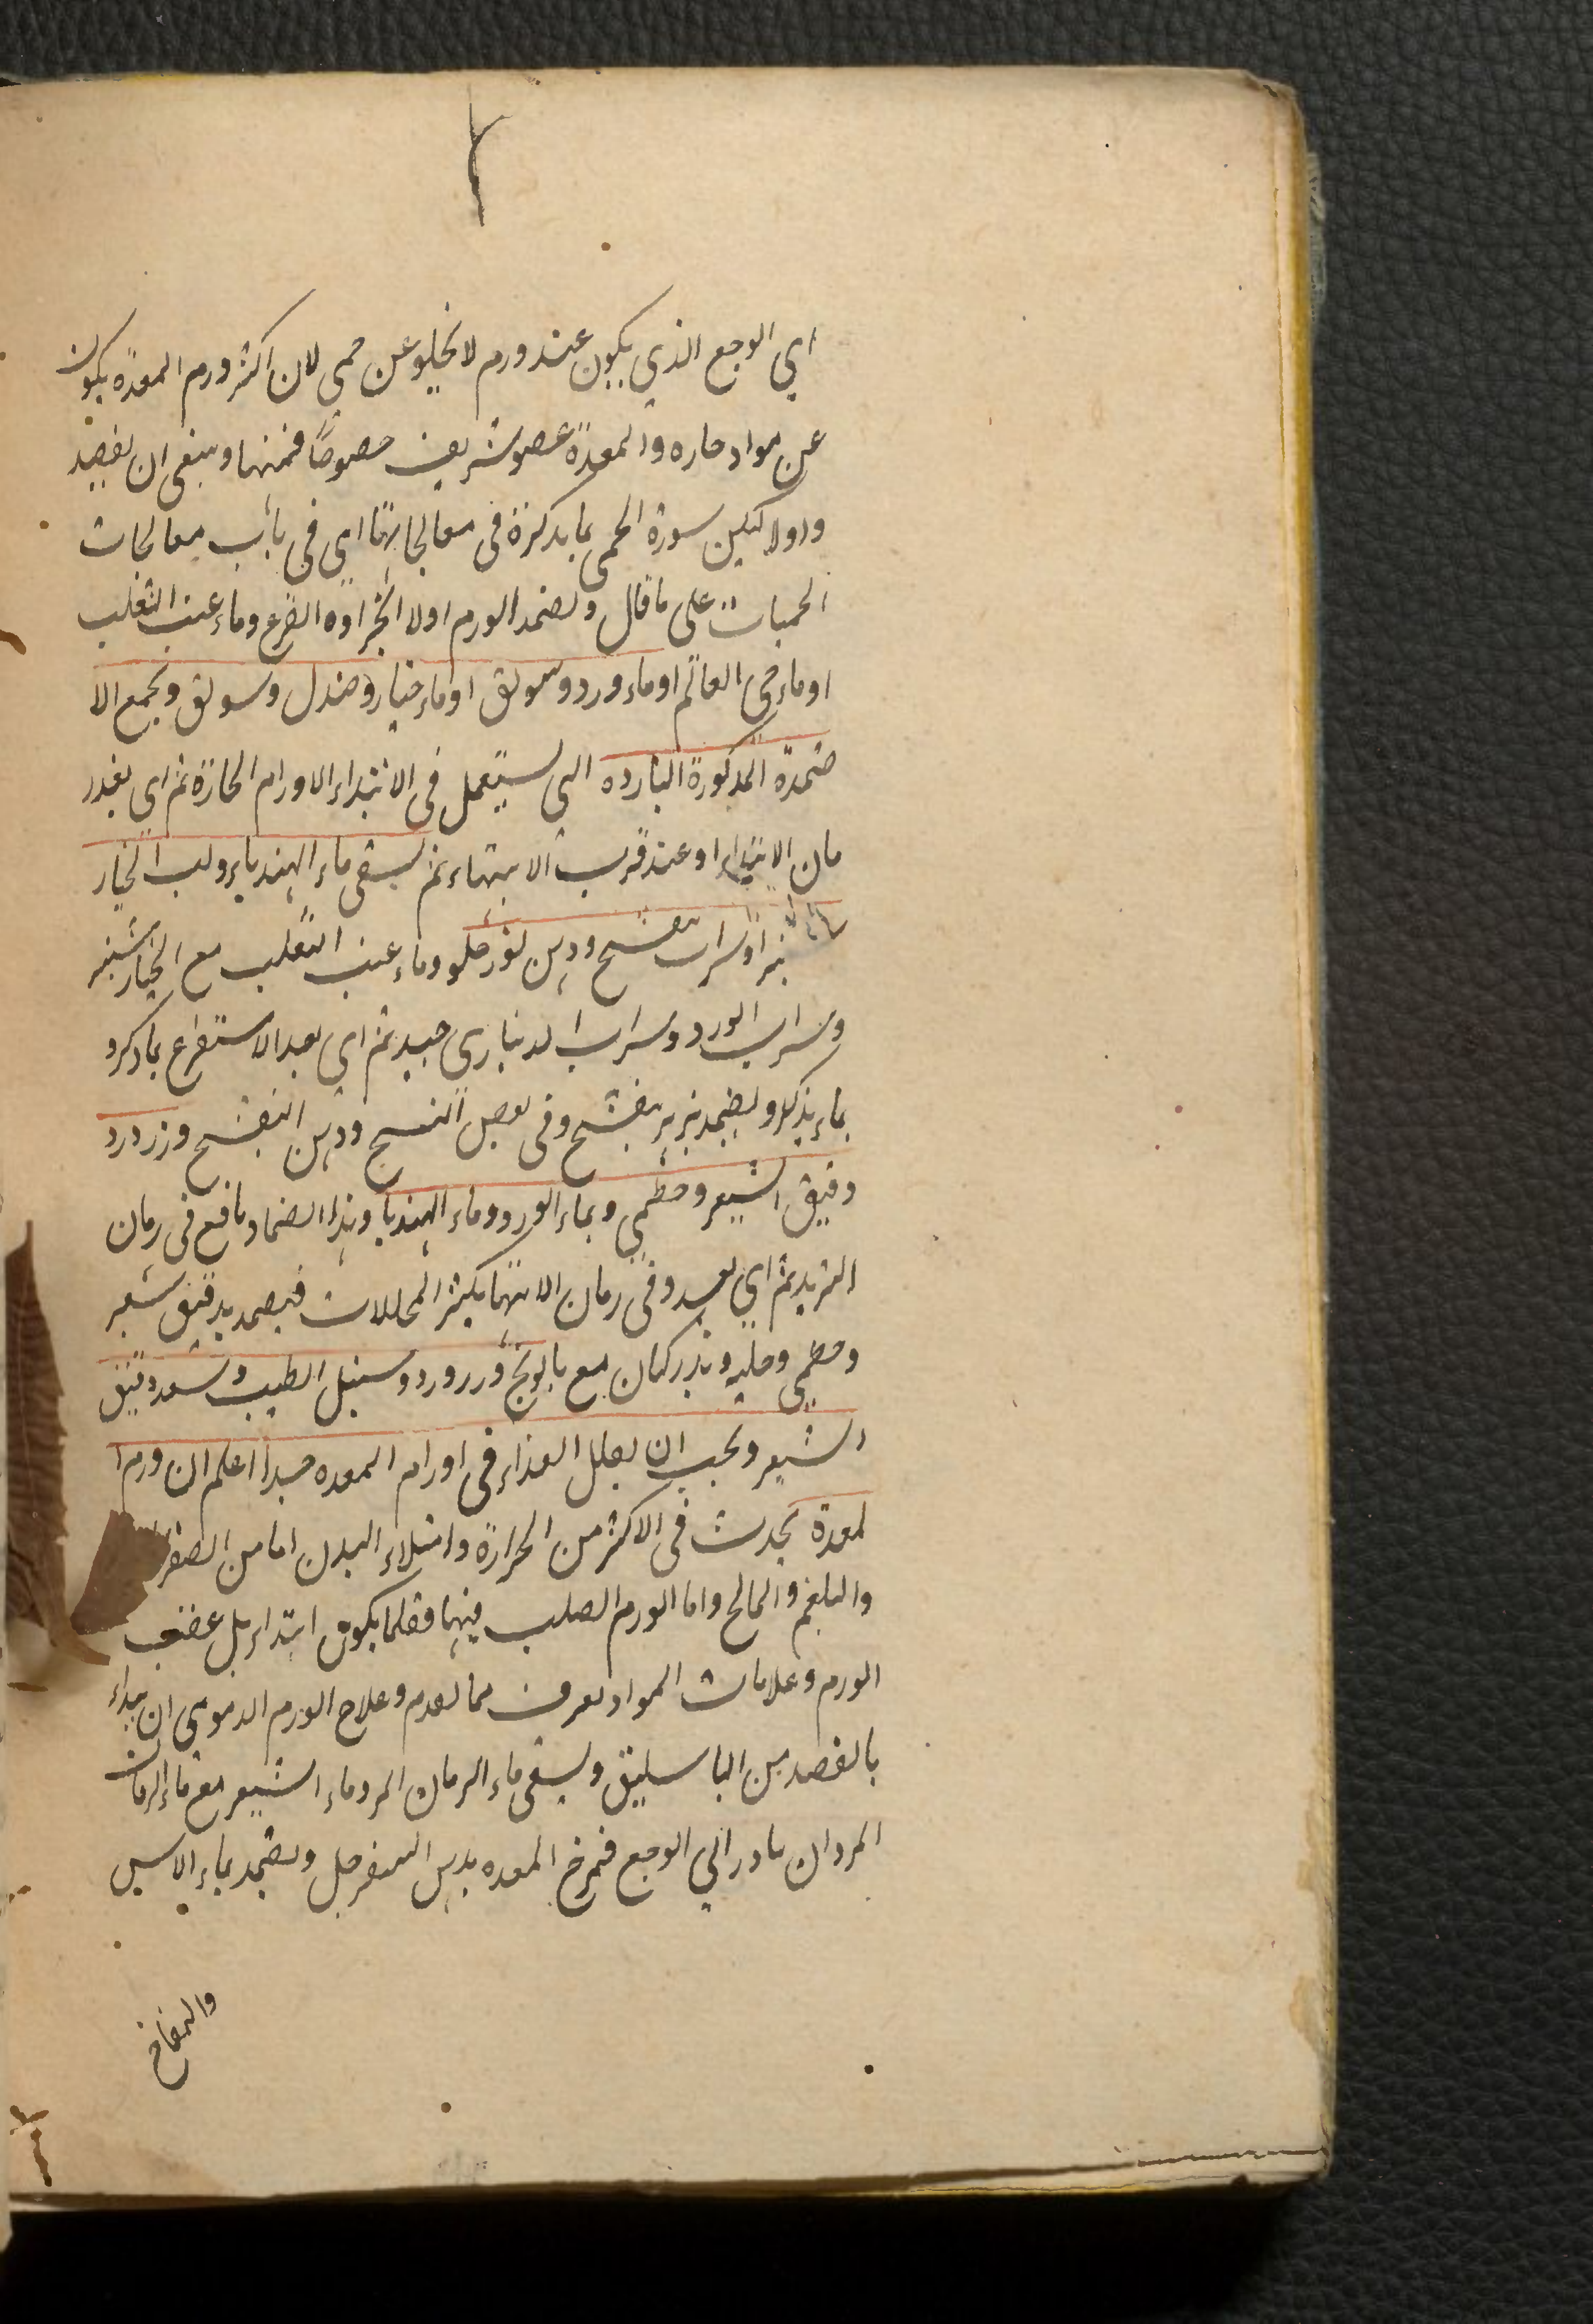 اي الوجع الذي يكون عند ورم لا يخلو عن حمى لان اكثر ورم المعدة يكون
عن مواد حاره والمعدة عضو شريف خصوصًا فمنها وينبغى ان يفصد
واولا تسكين سورة الحمى بما يذكرة فى معالجاتها اي في باب معالجات
الحميات على ما قال ويضمد الورم اولا بجراده القرع وماء عنب الثعلب
او ماء حي العالم او ماء ورد وسويق او ماء خيار وصندل وسويق وبجمع الا
ضمدة المذكورة البارده التى يستعمل فى الابتداء الاورام الحارة ثم اي بعد ز
مان الابتداء او عند قرب الانتهاء ثم يسقى ماء الهندباء ولب الخيار
شنبر او شراب بنفسج ودهن لوز حلو وماء عنب الثعلب مع الخيار شنبر
وشراب الورد وشراب الدينارى جيد ثم اي بعد الاستفرغ بما ذكر و
بماء يذكر ويضمد ببزر بنفسج وفى بعض النسخ ودهن البنفسج وزر ورد
دقيق الشعير وخطمي وبماء الورد وماء الهندبا وهذا الضماد نافع فى زمان
التزيد ثم اي بعد وفى زمان الانتها يكثر المحللات فيضمد بدقيق شعير
وخطمي وحلبه وبذر كتان مع بابونج وزر ورد وسنبل الطيب وسعد دقيق
الشعير ويجب ان يقلل الغذاء فى اورام المعده جدا اعلم ان ورم ا
لمعدة يحدث فى الاكثر من الحرارة وامتلاء البدن اما من الصفرا
والبلغم والمالح واما الورم الصلب فيها فقلما يكون ابتداء بل عقيب
الورم وعلامات المواد يعرف مما تقدم وعلاج الورم الدموي ان يبداء
بالفصد من الباسليق ويسقى ماء الرمان المر وماء الشعير مع ماء الرمان
المر وان بادر الي الوجع فتمرخ المعده بدهن السفرجل ويضمد بماء الاس
والتفاح